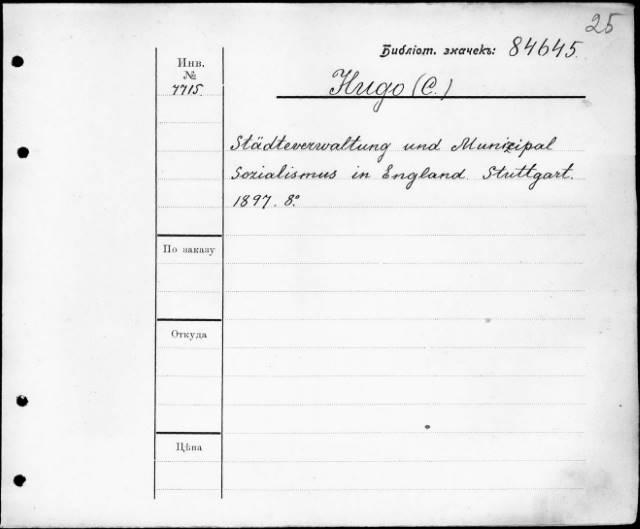 25
Библіот. значекъ: 84645.
Инв.
№
7715.
Hugo (C.)
Städteverwaltung und Munizipal
Sozialismus in England. Stuttgart.
1897. 8º
По заказу
Откуда
Цѣна